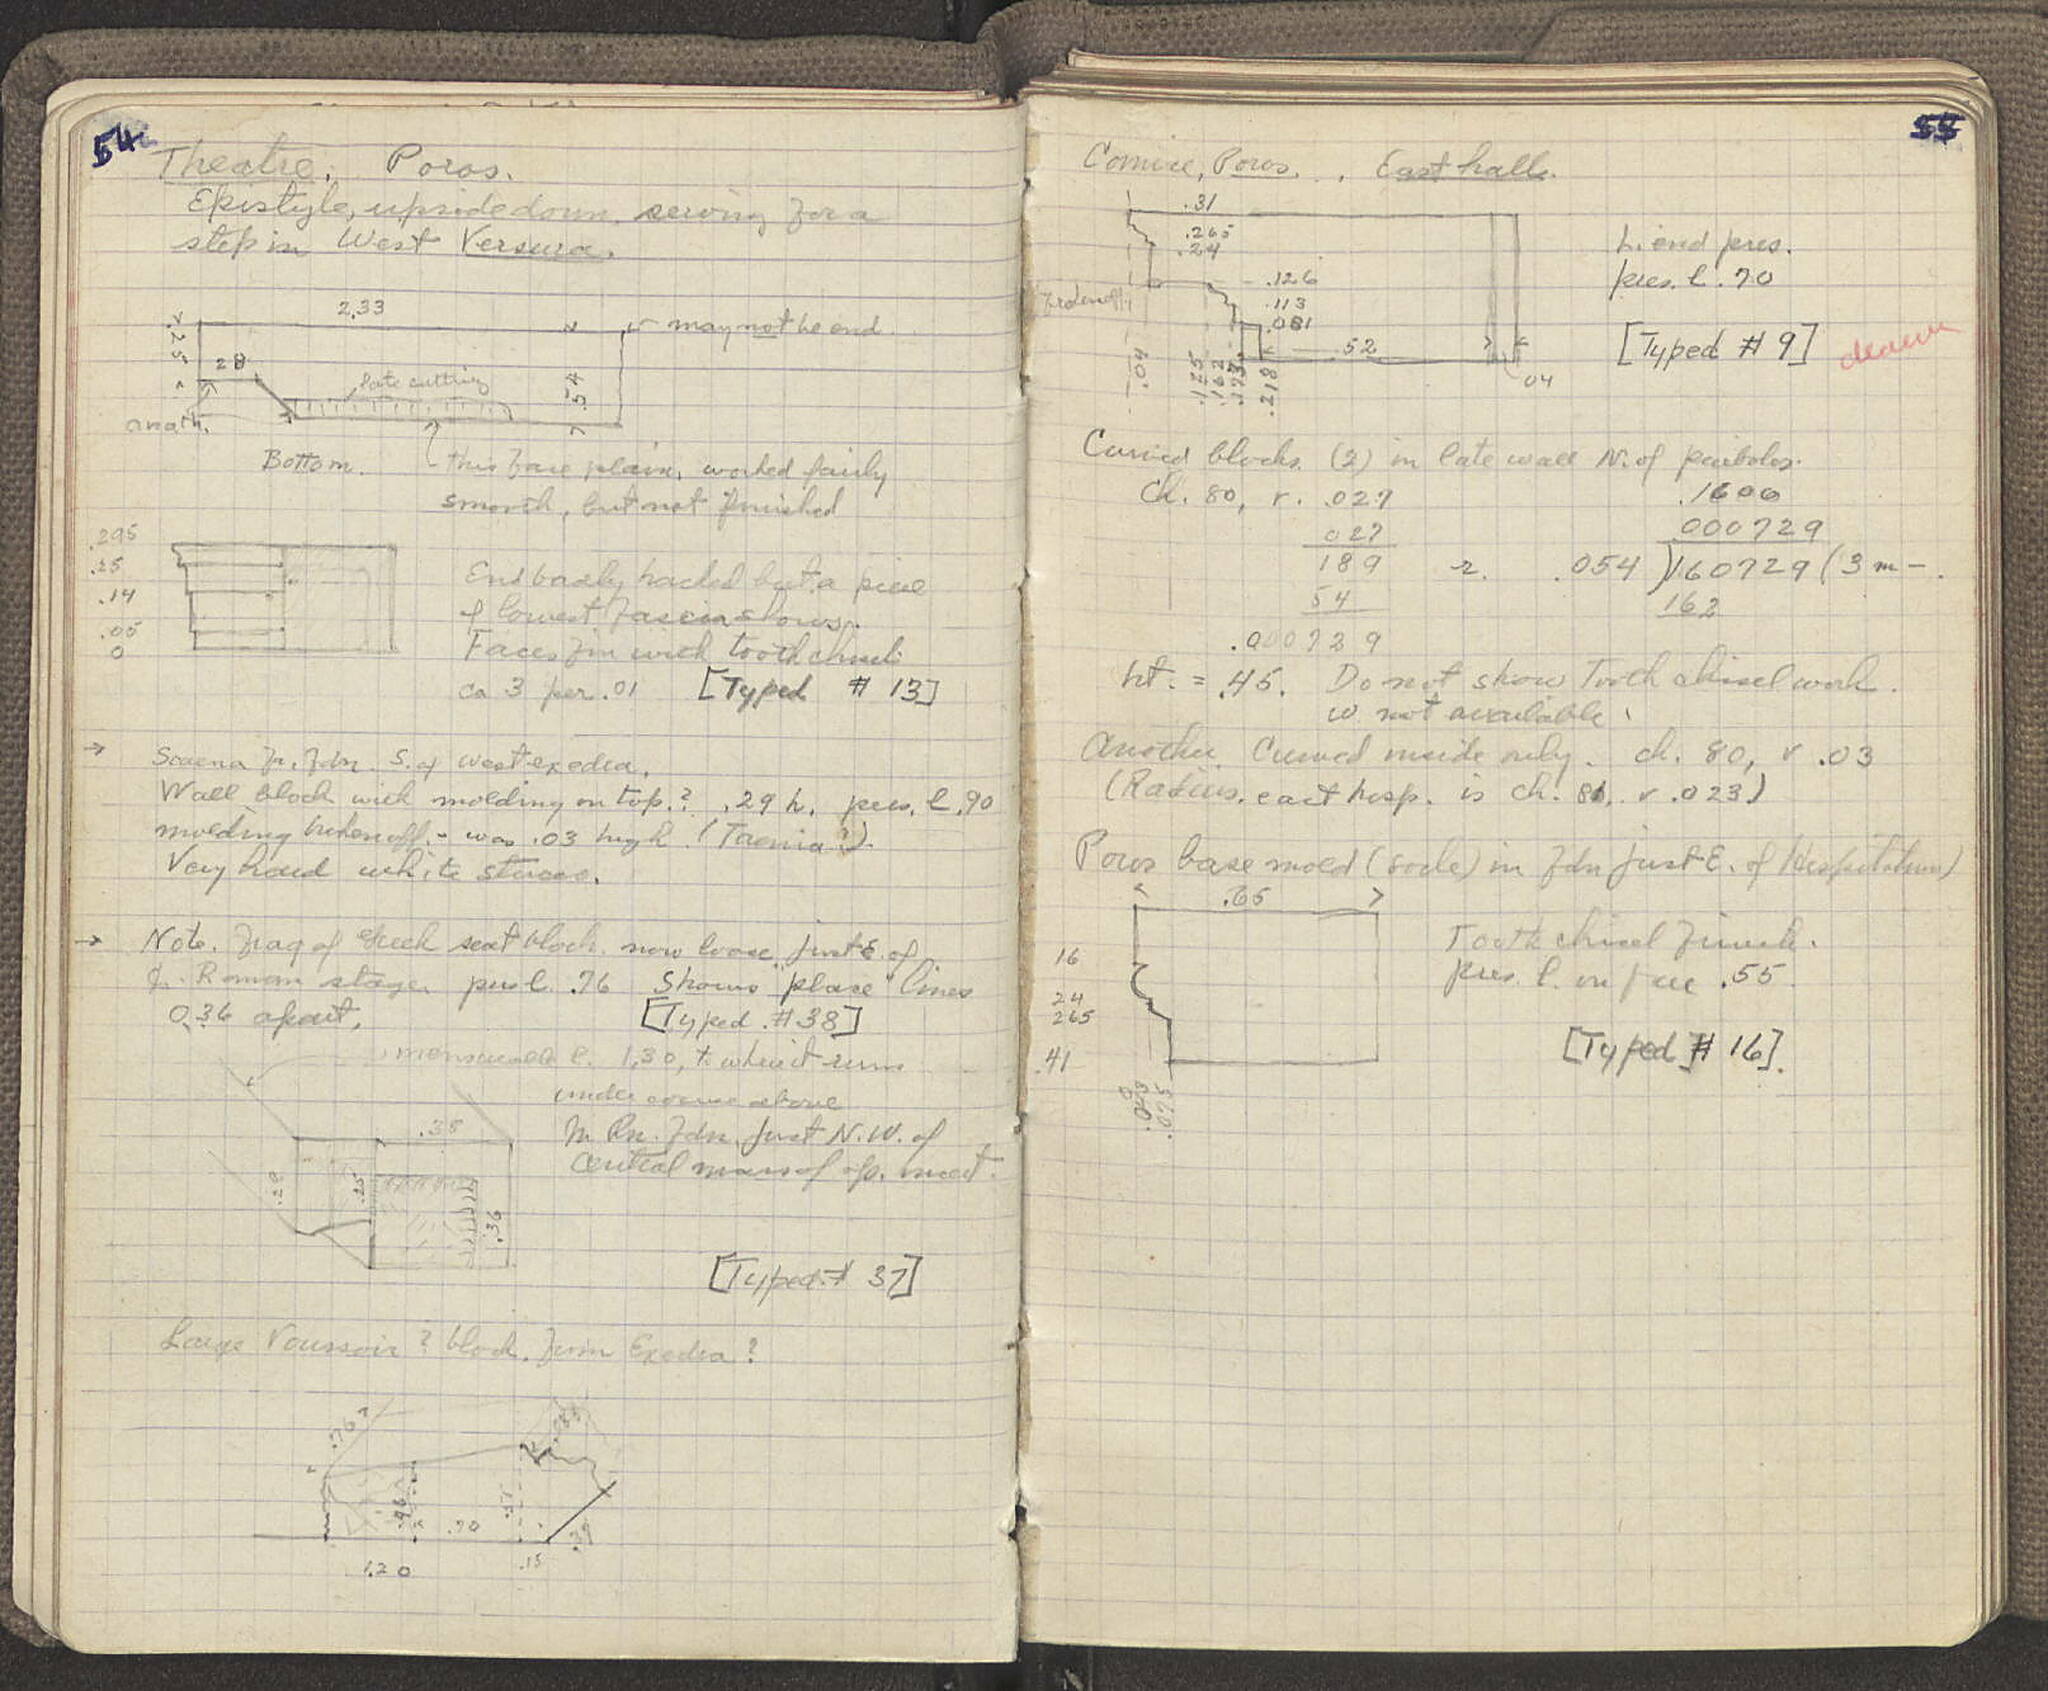 54
Theatre. Poros.
Epistyle, upside down, serving for a
step in West Versura.
2.33
may not be end.
.25
28
late cutting
.54
anath.
Bottom.
this face plain, worked fairly
smooth, but not finished
.295
.25
.14
.05
0
End badly hacked but a piece
of lowest fascia shows.
Faces fin with tooth chisel
ca 3 per .01 [Typed # 13]
→ Scaena fr. fdn. S. of west exedra.
Wall block with molding on top? .29 h. pres. l. .90
molding broken off - was .03 high (Taenia?).
Very hard white stucco.
→ Note. Frag of Greek seat block now loose just E. of
Roman stage pres l. .76 Shows "place" lines
0.36 apart.
[Typed # 38]
measurable l. 1.30, to where it runs
under course above
In Rn. fdn. just N.W. of
central mass of op. inc
.35
.29
.25
.36
[Typed # 37]
Large Voussoir? block, from Exedra?
.76
.46
.70
.51
.39
1.20
.15
55
Cornice, Poros. East hall.
.31
.265
.24
.126
.113
.081
.52
04
.04
.125
.162
.173
.218
L. end pres.
pres. l. .70
[Typed # 9]
drawn
Curved blocks (2) in late wall N. of peribolos.
ch. 80, r. .027
027
189
54
.000729
.1600
000729
r. .054 )160729 ( 3 m -.
162
ht. = .45. Do not show Tooth chisel work.
w. not available.
Another. Curved inside only. ch. 80, r .03
(Radius. east hosp. is ch. 81, r .023)
Poros base mold (socle) in fdn just E. of Hospitalium)
.65
16
24
265
.41
.043
.095
Tooth chisel finish.
pres. l. on face .55
[Typed # 16].